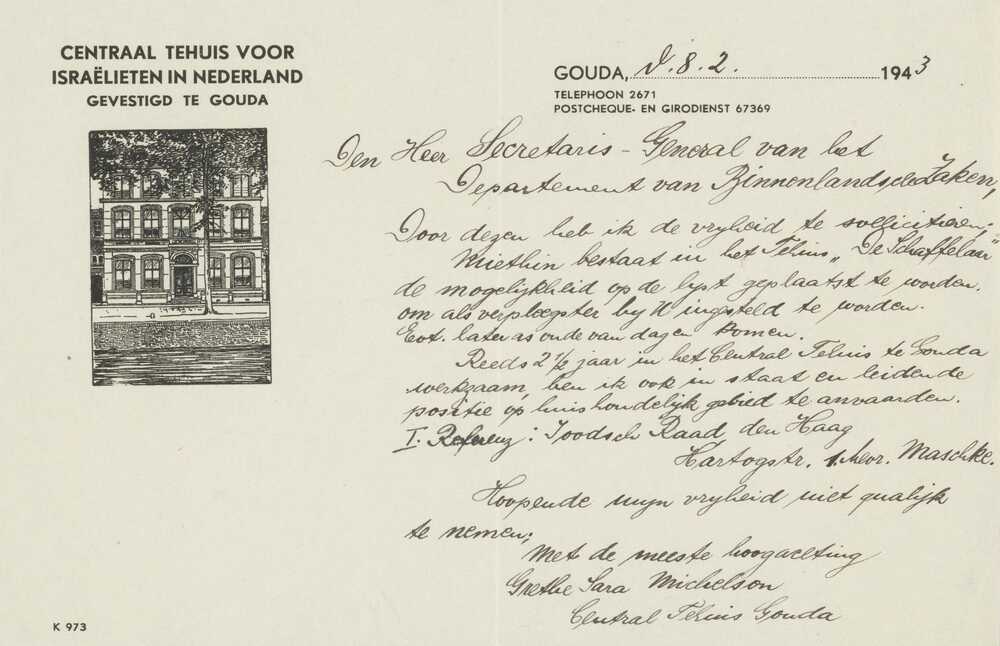 CENTRAAL TEHUIS VOOR
ISRAËLIETEN IN NEDERLAND
GEVESTIGD TE GOUDA
GOUDA, d. 8. 2. 1943
TELEPHOON 2671
POSTCHEQUE- EN GIRODIENST 67369
Den Heer Secretaris - General van het
Departement van Binnenlandsche Zaken,
Door dezen heb ik de vryheid te sollicitieren;
Miethin bestaat in het Tehuis „De Schaffelaar"
de mogelijkheid op de lyst geplaatst te worden.
om als verpleegster by U ingesteld te worden.
Evt. later as oude van dagen komen.
Reeds 2 1/2 jaar in het Central Tehuis te Gouda
werkzaam, ben ik ook in staat en leidende
positie op huishoudelijk gebied te anvaarden.
I. Referenz: Joodsch Raad, den Haag
Hartogstr. 1. Maschke.
Hoopende myn vryheid niet qualijk
te nemen;
Met de meeste hoogachting
Grethe Sara Michelson
Central Tehuis Gouda
K 973